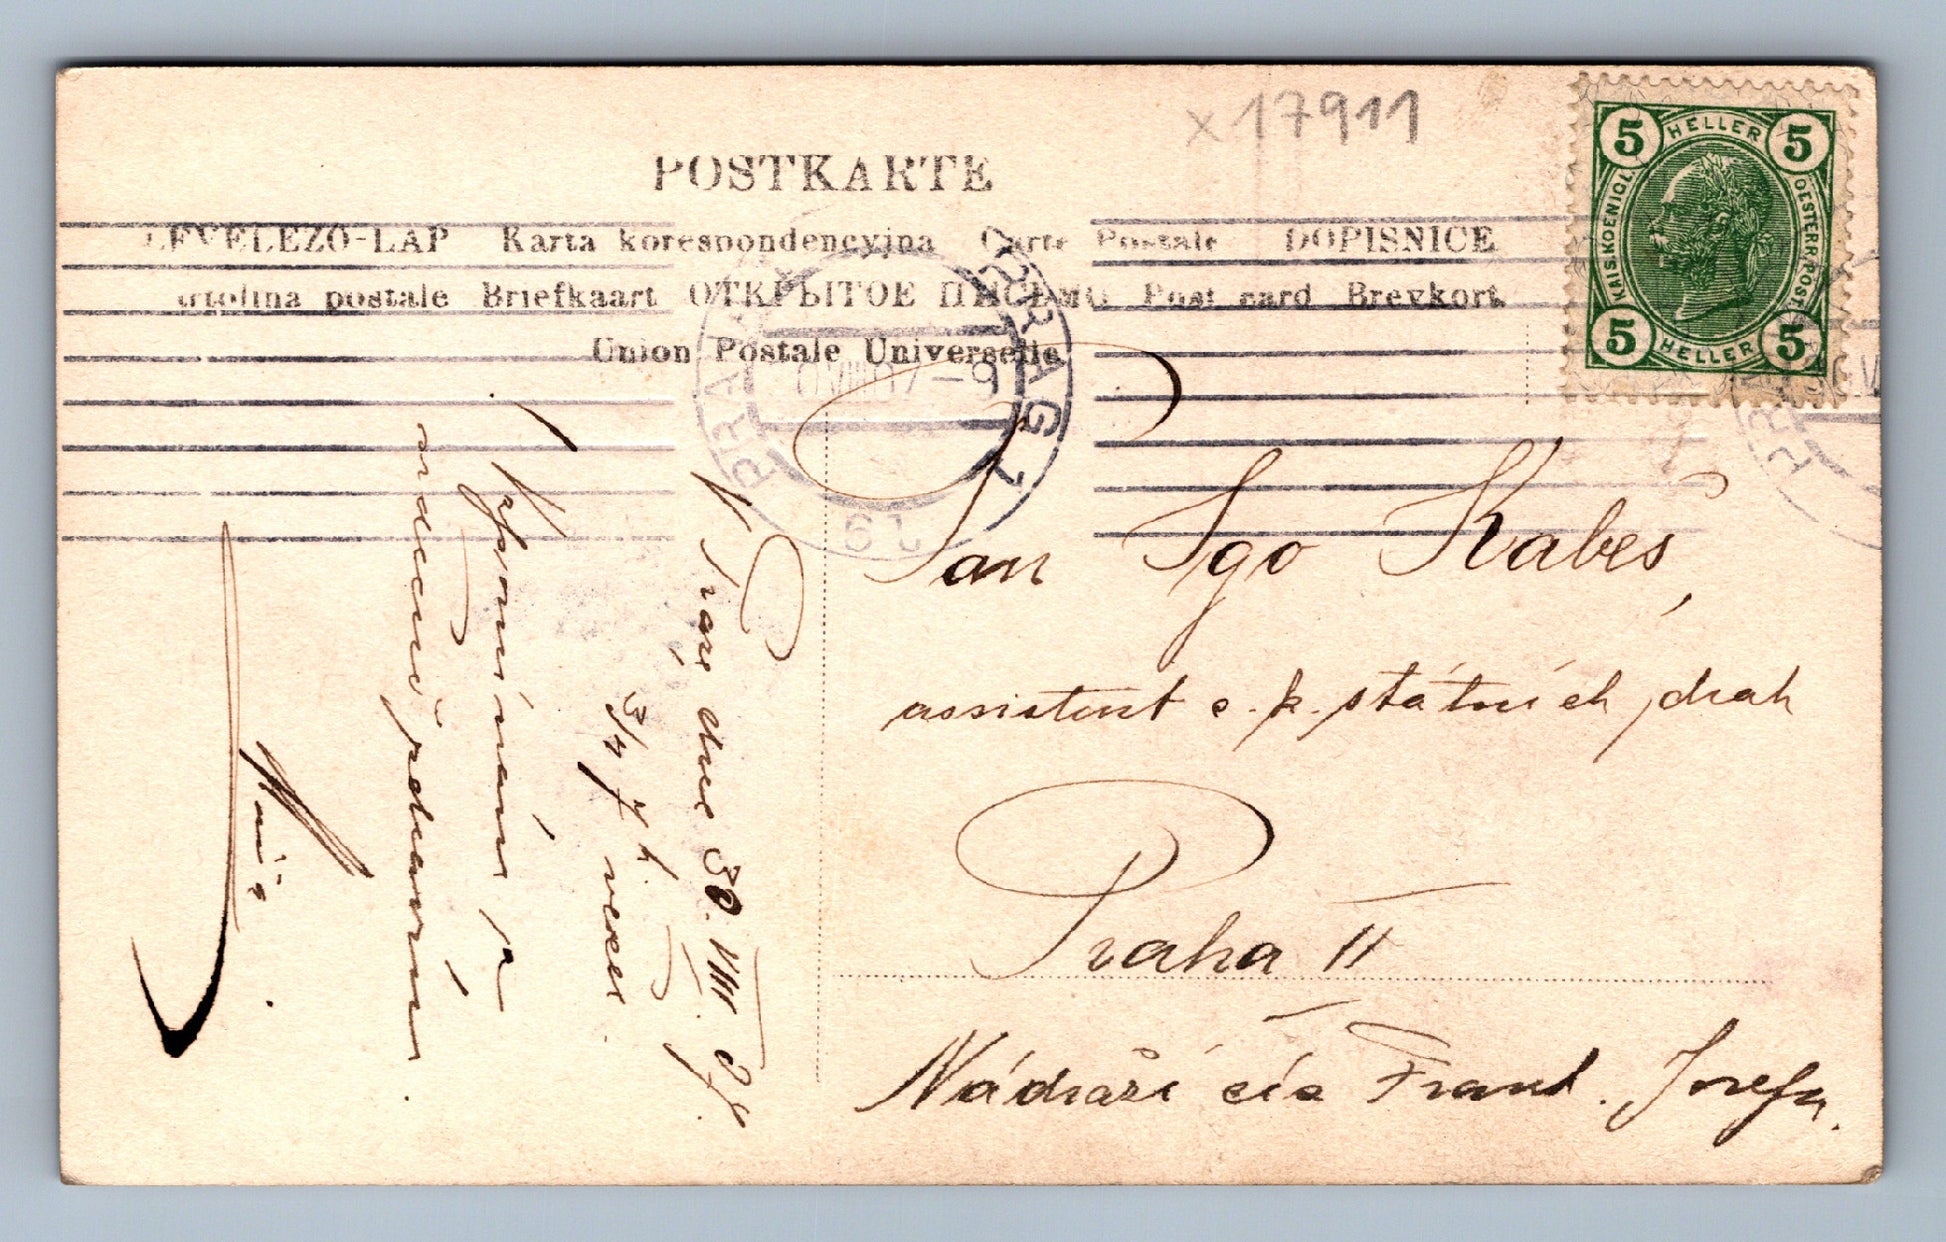 x 17911
POSTKARTE
LEVELEZŐ-LAP Karta korespondencyjna Carte Postale DOPISNICE
artolina postale Briefkaart ОТКРЫТОЕ ПИСЬМО Post card Brevkort.
Union Postale Universelle
5 HELLER 5
KAIS.KOENIGL. OESTERR.POST
5 HELLER 5
PRAHA PRAG 1
0 VIII 07-9
Pan Igo Kabeš
assistent c. k. státních drah
Praha II
Nádraží cís Frant. Josefa.
V Praze dne 30. VIII. 07.
3/4 7 h. večer.
Vzpomínám a
srdečně zdravím.